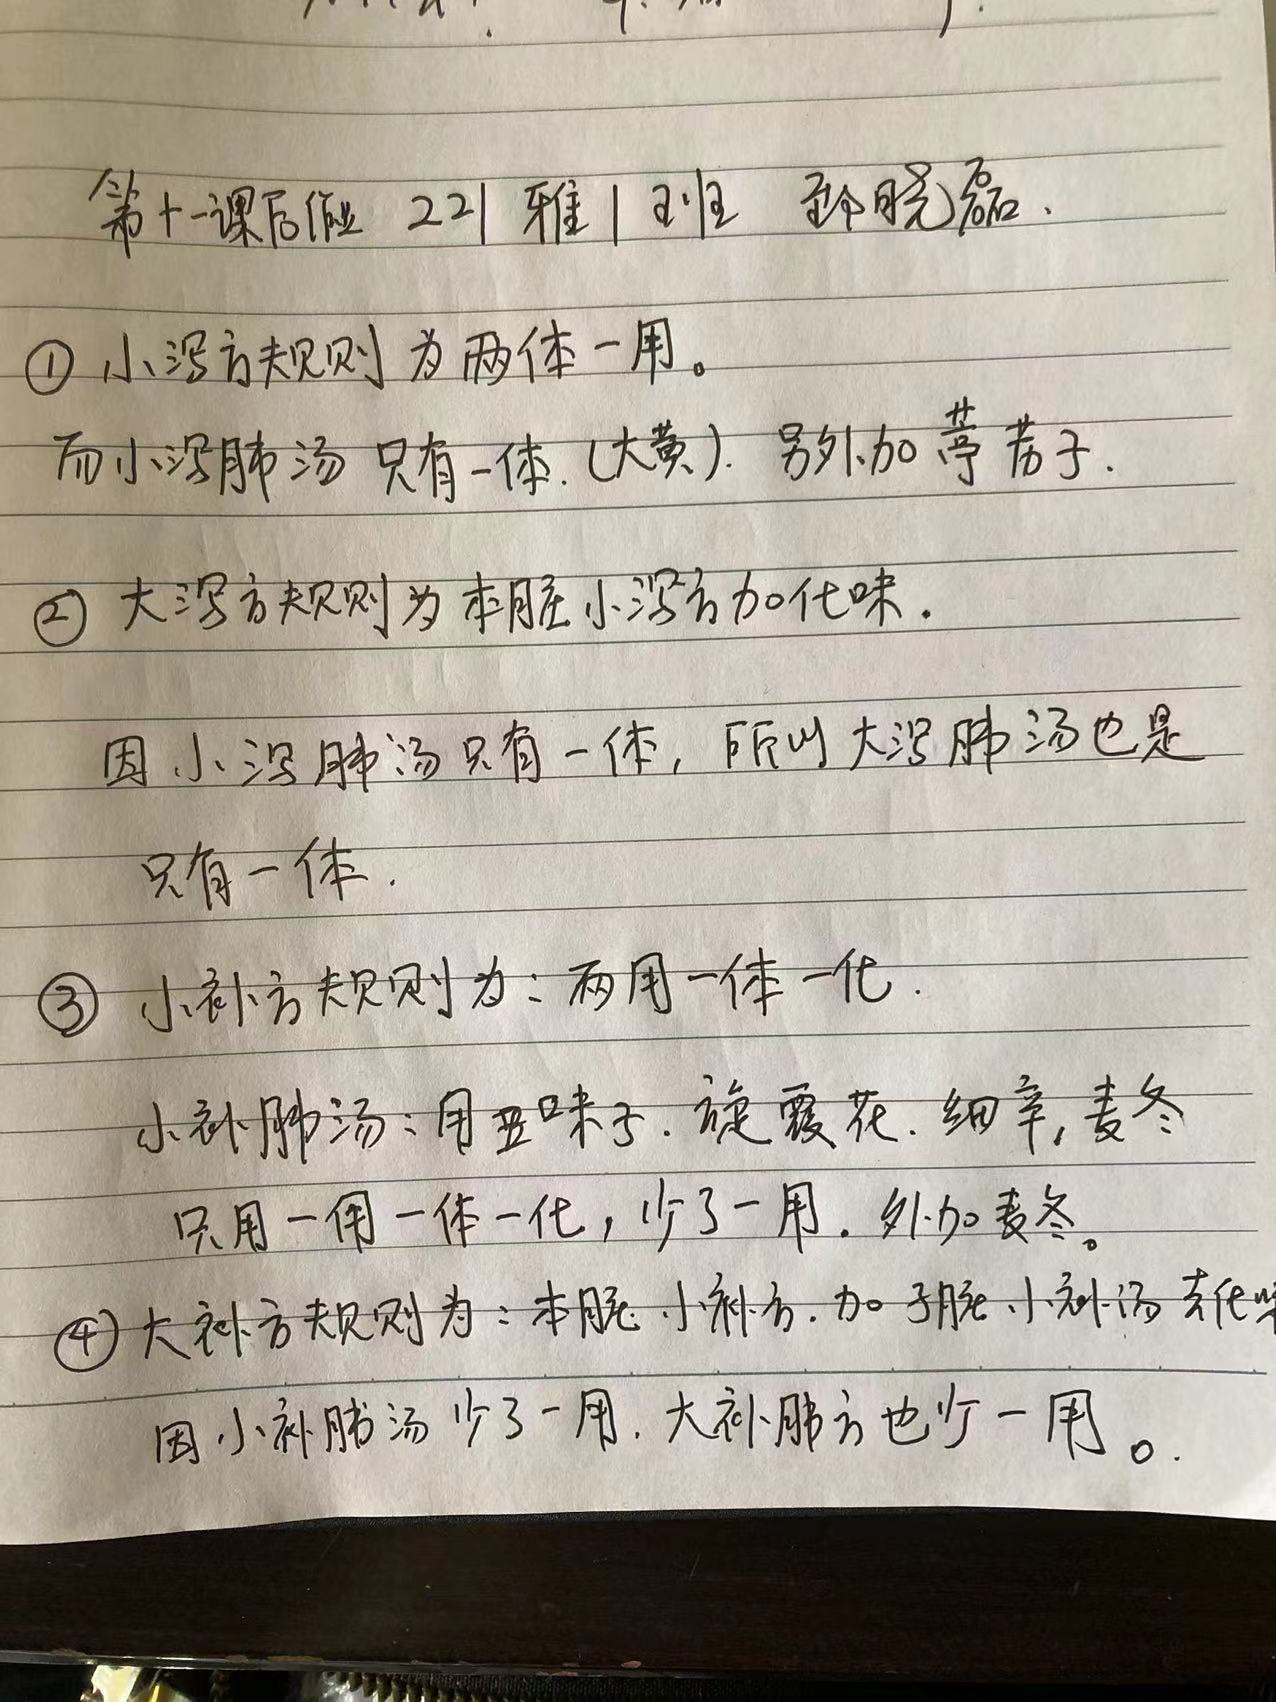 第十一课后作业 221雅1班 晓磊.
① 小泻方规则为两体一用。
而小泻肺汤只有一体.(大黄). 另外加葶苈子.
② 大泻方规则为本脏小泻方加化味.
因小泻肺汤只有一体, 所以大泻肺汤也是
只有一体.
③ 小补方规则为: 两用一体一化.
小补肺汤: 用五味子. 旋覆花. 细辛, 麦冬
只用一用一体一化, 少了一用. 外加麦冬。
④ 大补方规则为: 本脏小补方. 加子脏小补汤去化味
因小补肺汤少了一用. 大补肺方也少一用。.